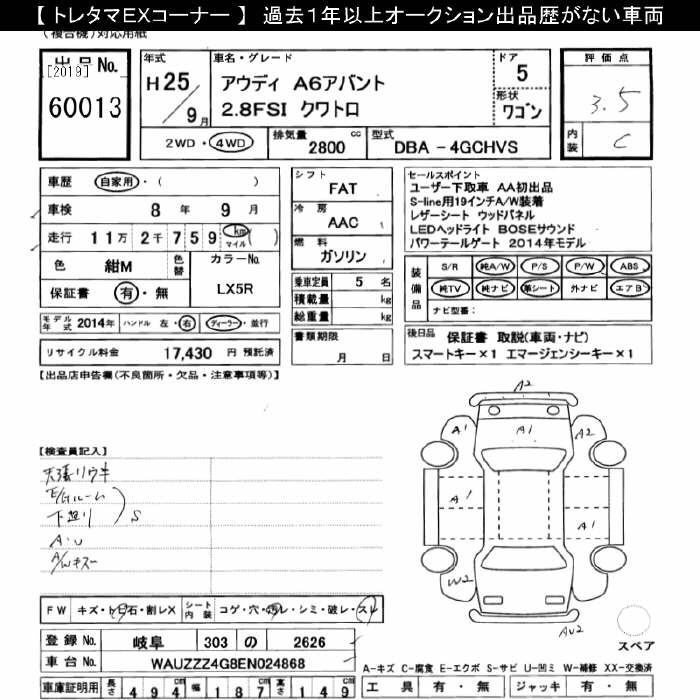 【 トレタマEXコーナー 】 過去１年以上オークション出品歴がない車両
（複合機）対応用紙
出品No.
[2019]
60013
年式
H25
9月
車名・グレード
アウディ A6アバント
2.8FSI クワトロ
ドア
5
形状
ワゴン
2WD・4WD
排気量
2800 cc
型式
DBA - 4GCHVS
評価点
3.5
内装
C
車歴 自家用・( )
車検 8年 9月
走行 11万2千759 km マイル ( )
色 紺M 色替
カラーNo.
LX5R
保証書 有・無
シフト
FAT
冷房
AAC
燃料
ガソリン
乗車定員 5 名
積載量 kg
総重量 kg
書類期限
月 日
セールスポイント
ユーザー下取車 AA初出品
S-line用19インチA/W装着
レザーシート ウッドパネル
LEDヘッドライト BOSEサウンド
パワーテールゲート 2014年モデル
装備品
S/R 純A/W P/S P/W ABS
純TV 純ナビ 革シート 外ナビ エアB
ナビ型番:
モデル年式 2014年 ハンドル 左・右 ディーラー・並行
リサイクル料金 17,430 円 預託済
後日品 保証書 取説(車両・ナビ)
スマートキー×1 エマージェンシーキー×1
【出品店申告欄(不良箇所・欠品・注意事項等)】
【検査員記入】
天張リウキ
E/Gルーム
下廻リ
S
A・U
A/Wキズ
A2
A1
A1
A2
A1
A1
W2
AU2
スペア
FW キズ・ト石・割レX シート内装 コゲ・穴・切レ・シミ・破レ・スレ
登録No. 岐阜 303 の 2626
車台No. WAUZZZ4G8EN024868
A-キズ C-腐食 E-エクボ S-サビ U-凹ミ W-補修 XX-交換済
車庫証明用 長さ 494 幅 187 高さ 149
工具 有・無 ジャッキ 有・無